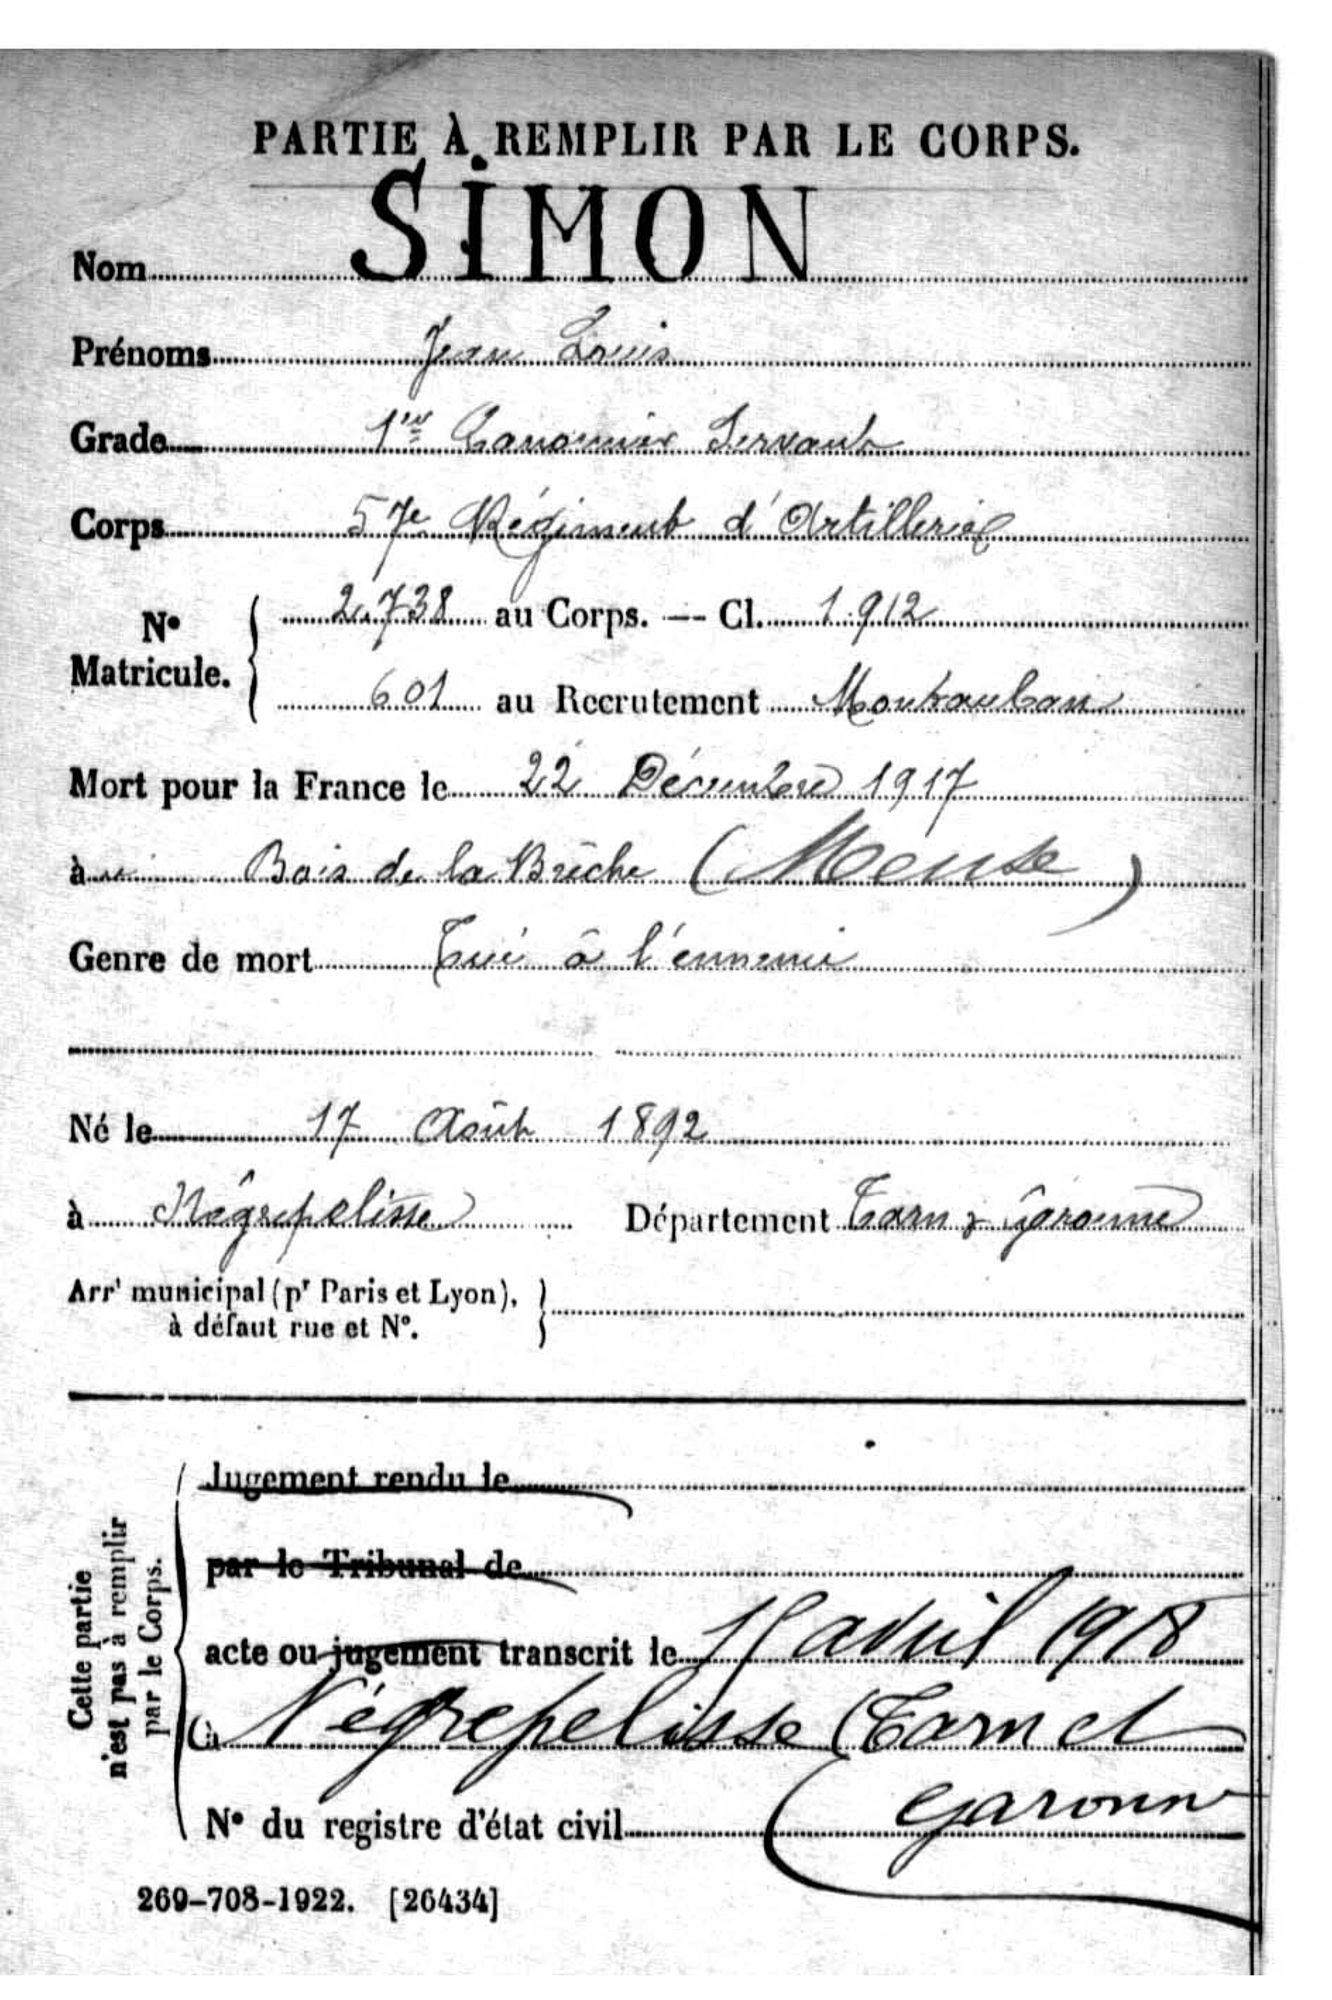 PARTIE À REMPLIR PAR LE CORPS.
Nom SIMON
Prénoms Jean Louis
Grade 1er Canonnier Servant
Corps 57e Régiment d'Artillerie
No Matricule. { 2.738 au Corps. — Cl. 1912
601 au Recrutement Montauban
Mort pour la France le 22 Décembre 1917
à Bois de la Brèche (Meuse)
Genre de mort Tué à l'ennemi
Né le 17 Août 1892
à Nêgrepelisse Département Tarn & Garonne
Arrt municipal (pr Paris et Lyon),
à défaut rue et No.
Cette partie
n'est pas à remplir
par le Corps.
Jugement rendu le
par le Tribunal de
acte ou jugement transcrit le 15 avril 1918
à Négrepelisse (Tarn et
Garonne
No du registre d'état civil
269-708-1922. [26434]